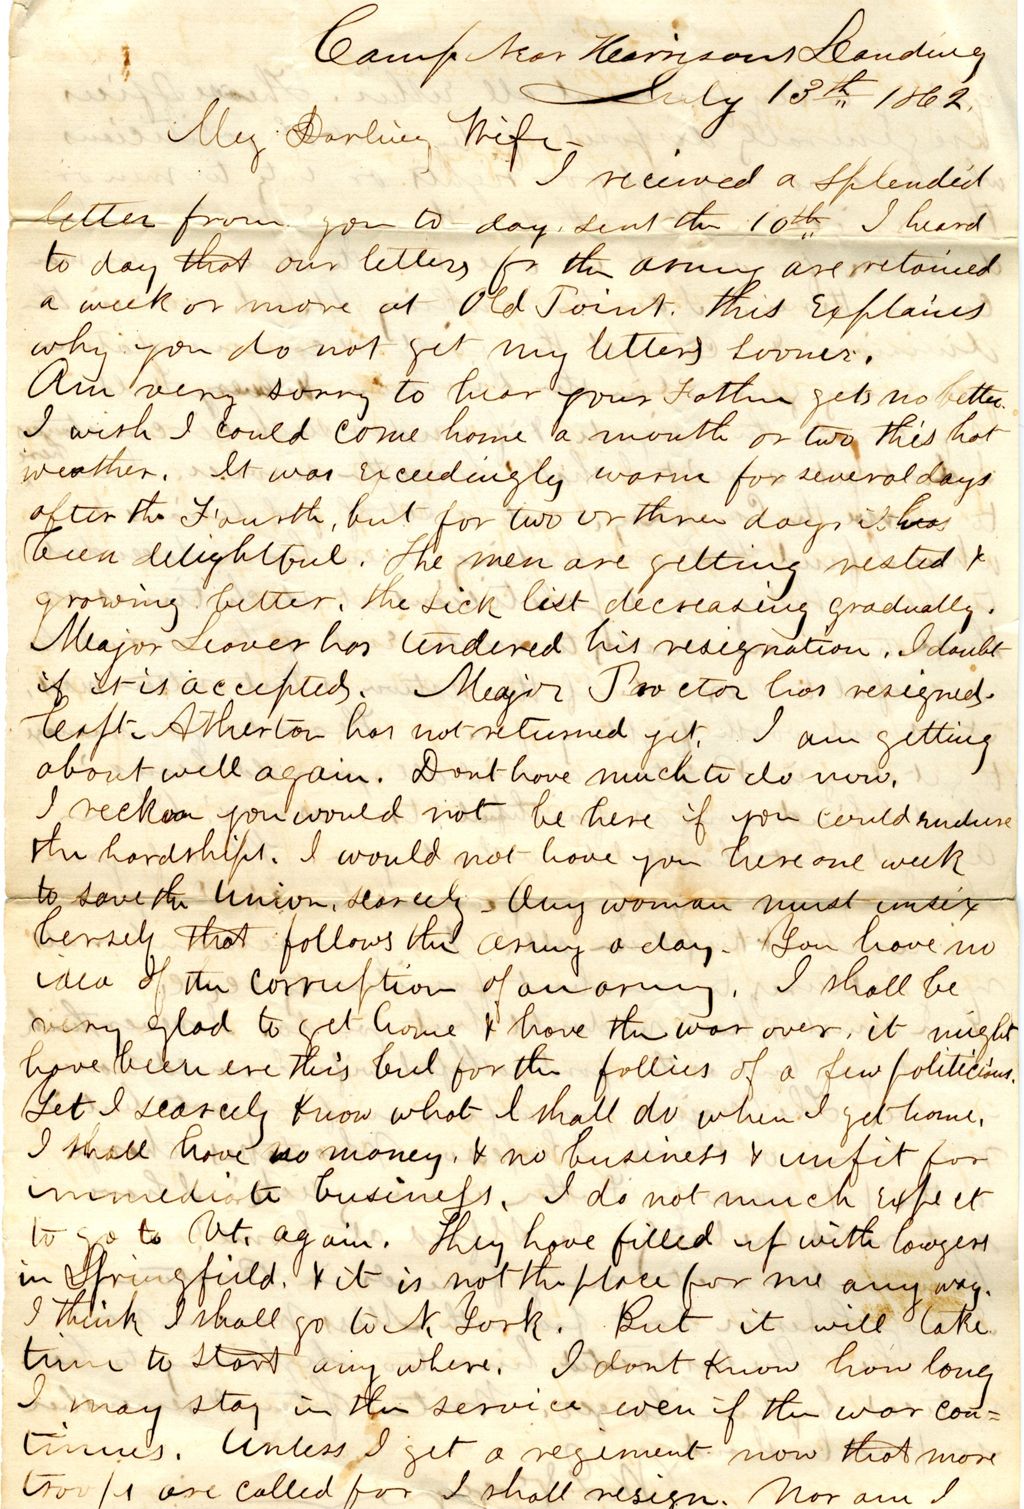 Camp Near Harrisons Landing
July 13th 1862.
My Darling Wife-
I received a splendid
letter from you to day, sent the 10th I heard
to day that our letters for the army are retained
a week or more at Old Point. this Explains
why you do not get my letters sooner.
Am very sorry to hear your Father gets no better.
I wish I could come home a month or two this hot
weather. It was exceedingly warm for several days
after the Fourth, but for two or three days it has
been delightful. The men are getting rested &
growing better. the sick list decreasing gradually.
Major Leaver has tendered his resignation. I doubt
if it is accepted. Major Proctor has resigned.
Capt. Atherton has not returned yet. I am getting
about well again. Dont have much to do now.
I reckon you would not be here if you could endure
the hardships. I would not have you here one week
to save the Union, scarcely. Any woman must unsex
herself that follows the army a day. You have no
idea of the corruption of an army. I shall be
very glad to get home & have the war over. it might
have been ere this but for the follies of a few politicians.
Yet I scarcely know what I shall do when I get home.
I shall have no money, & no business & unfit for
immediate business. I do not much expect
to go to Vt. again. They have filled up with lawyers
in Springfield. & it is not the place for me any way.
I think I shall go to N. York. But it will take
time to start any where. I dont know how long
I may stay in the service even if the war con=
tinues. Unless I get a regiment now that more
troops are called for I shall resign. Nor am I